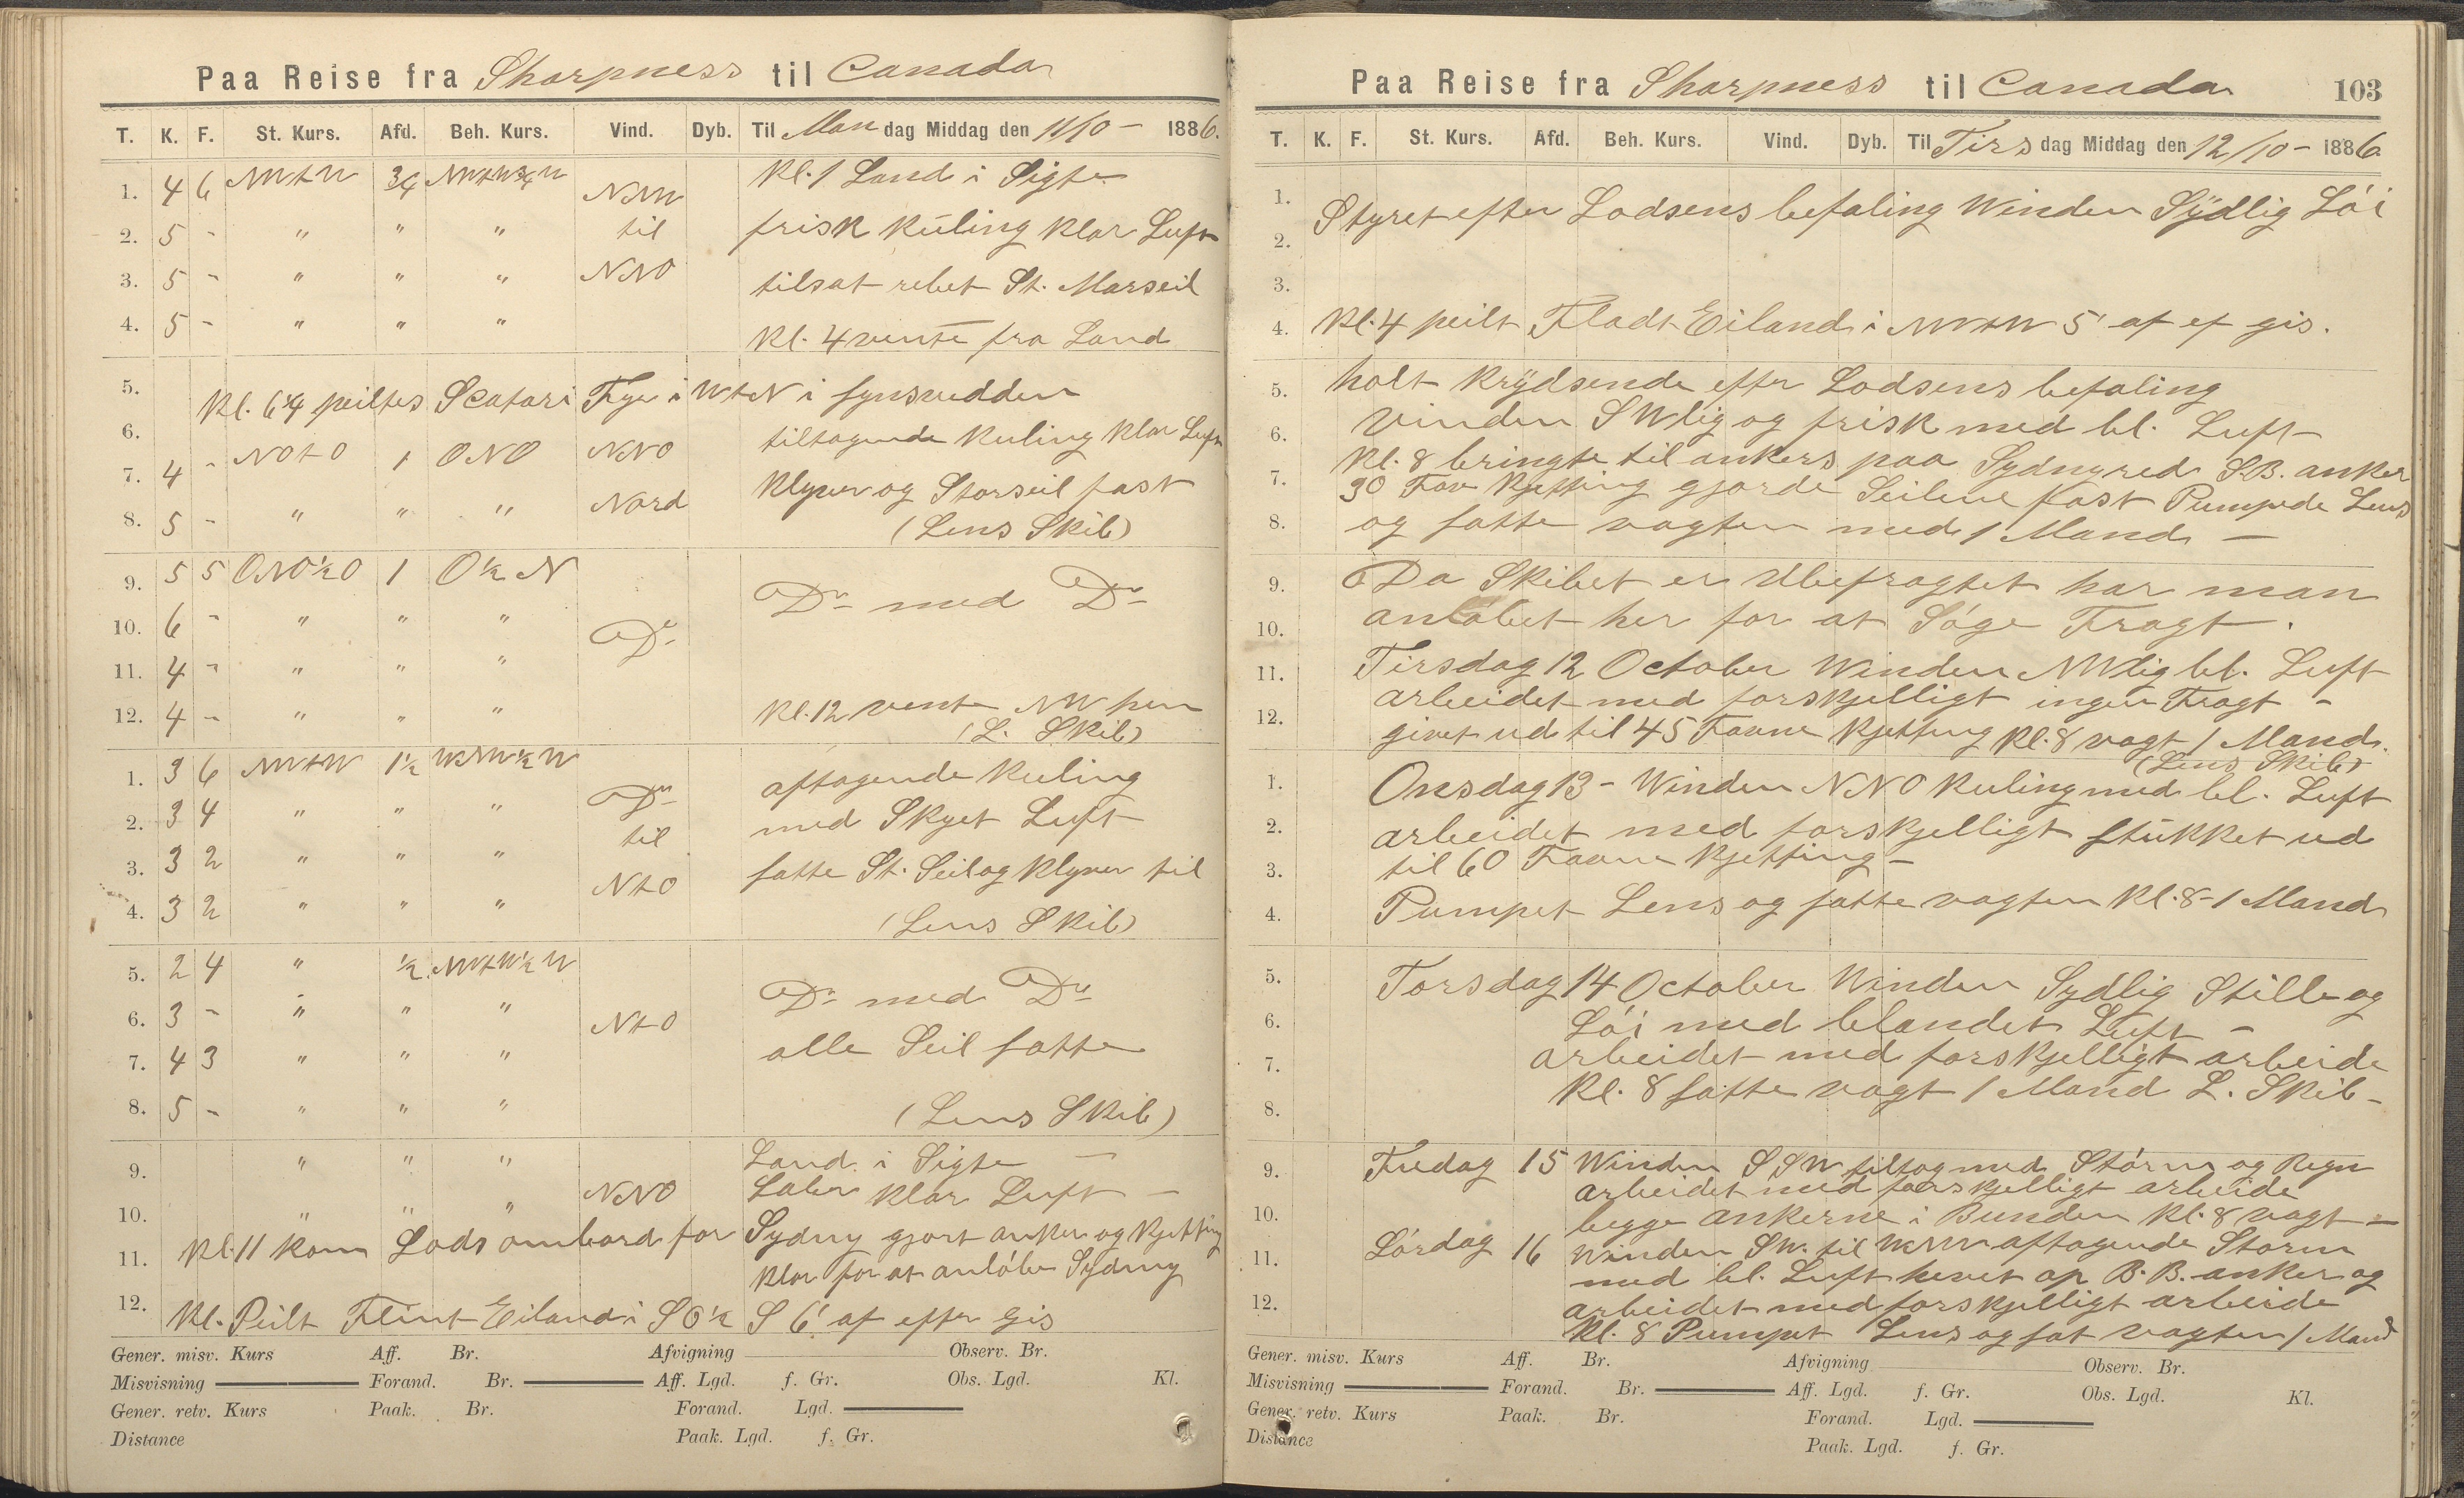 Paa Reise fra Sharpness til Canada
T. K. F. St. Kurs. Afd. Beh. Kurs. Vind. Dyb. Til Man dag Middag den 11/10 - 1886.
1. 4 6 NWtW 3/4 NWtW3/4W NNW Kl. 1 Land i Sigte
2. 5 - " " " til frisk Kuling klar Luft
3. 5 - " " " NNO tilsat rebet St. Marseil
4. 5 - " " " Kl. 4 vente fra Land
5. Kl. 6 1/4 peiltes Scatari Fyr i WtN i synsvedden
6. tiltagende Kuling klar Luft
7. 4 - NOtO 1 ONO NNO Klyver og Storseil fast
8. 5 - " " " Nord (Lens Skib)
9. 5 5 ONO1/2O 1 O1/2N Do med Do
10. 6 - " " " Do
11. 4 - " " "
12. 4 - " " " Kl. 12 vente NW hen
(L. Skib)
1. 3 6 NWtW 1 1/2 WNW1/2W Do aftagende Kuling
2. 3 4 " " " til med Skyet Luft
3. 3 2 " " " NtO satte St. Seil og Klyver til
4. 3 2 " " " (Lens Skib)
5. 2 4 " 1/2 NWtW1/2W Do med Do
6. 3 - " " " NtO
7. 4 3 " " " alle Seil satte
8. 5 - " " " (Lens Skib)
9. " " " Land i Sigte -
10. " " " NNO Laber klar Luft -
11. Kl. 11 kom Lods ombord for Sydny gjort anker og Kjetting
klar for at anløbe Sydny
12. Kl. Peilt Flint Eiland i SO1/2S 6' af eftr Gis
Gener. misv. Kurs Aff. Br. Afvigning Observ. Br.
Misvisning Forand. Br. Aff. Lgd. f. Gr. Obs. Lgd. Kl.
Gener. retv. Kurs Paak. Br. Forand. Lgd.
Distance Paak. Lgd. f. Gr.
Paa Reise fra Sharpness til Canada 103
T. K. F. St. Kurs. Afd. Beh. Kurs. Vind. Dyb. Til Tirs dag Middag den 12/10 - 1886.
1. Styret efter Lodsens befaling Winden Sÿdlig Løi
2.
3.
4. Kl. 4 peilt Fladt Eiland i NWtW 5' af ef gis.
5. holt Krÿdsende eftr Lodsens befaling
6. Vinden SWlig og frisk med bl. Luft -
7. Kl. 8 bringte til ankers paa Sydny red S.B. anker
30 Fav Kjetting gjorde Seilene fast Pumpede Lens
8. og satte vagten med 1 Mand -
9. Da Skibet er Ubefragtet har man
10. anløbet her for at Søge Fragt.
11. Tirsdag 12 October Winden NWlig bl. Luft
12. arbeidet med forskjelligt ingen Fragt -
givet ud til 45 Favne Kjetting Kl. 8 vagt 1 Mand.
(Lens Skib)
1. Onsdag 13 - Winden NNO Kuling med bl. Luft
2. arbeidet med forskjelligt stukket ud
3. til 60 Favne Kjetting -
4. Pumpet Lens og satte vagten Kl. 8 - 1 Mand
5. Torsdag 14 October Winden Sydlig Stille og
6. Løi med blandet Luft -
7. arbeidet med forskjelligt arbeide
8. Kl. 8 satte vagt 1 Mand L. Skib -
9. Fredag 15 Winden SSW tiltog med Storm og Regn
arbeidet med forskjelligt arbeide
10. begge ankerne i Bunden Kl. 8 vagt -
11. Lørdag 16 Winden SW. til WNW aftagende Storm
med bl. Luft hevet op B.B. anker og
12. arbeidet med forskjelligt arbeide
Kl. 8 Pumpet Lens og sat vagten 1 Mand
Gener. misv. Kurs Aff. Br. Afvigning Observ. Br.
Misvisning Forand. Br. Aff. Lgd. f. Gr. Obs. Lgd. Kl.
Gener. retv. Kurs Paak. Br. Forand. Lgd.
Distance Paak. Lgd. f. Gr.